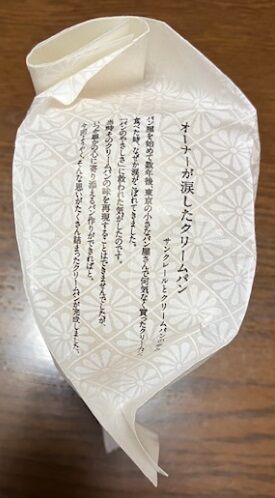 オーナーが涙したクリームパン
サンクレールとクリームパン
パン屋を始めて数年後、東京の小さなパン屋さんで何気なく買ったクリーム
食べた時、なぜか涙がこぼれてきました。
「パンのやさしさ」に救われた気がしたのです。
当時そのクリームパンの味を再現することはできませんでしたが、
の心に寄り添えるパン作りができればと、
そんな思いがたくさん詰まったクリームパンが完成しました。